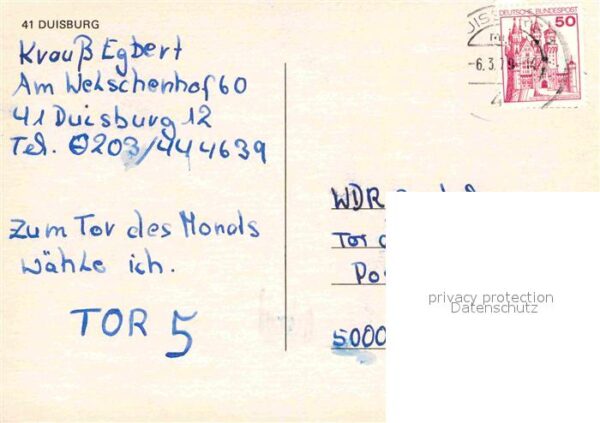 41 DUISBURG
Krauß Egbert
Am Welschenhof 60
41 Duisburg 12
Tel. 0203/444639
Zum Tor des Monats
wähle ich.
TOR 5
DEUTSCHE BUNDESPOST
50
-6.3.79
4
WDR
Tor
5000
privacy protection
Datenschutz